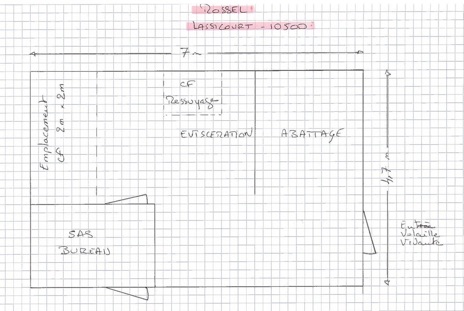 ROSSEL
LASSICOURT - 10500
7 m
CF
Ressuyage
Emplacement
CF 2m x 2m
EVISCERATION
ABATTAGE
4,7 m
SAS
BUREAU
Entrée
Volaille
Vivante